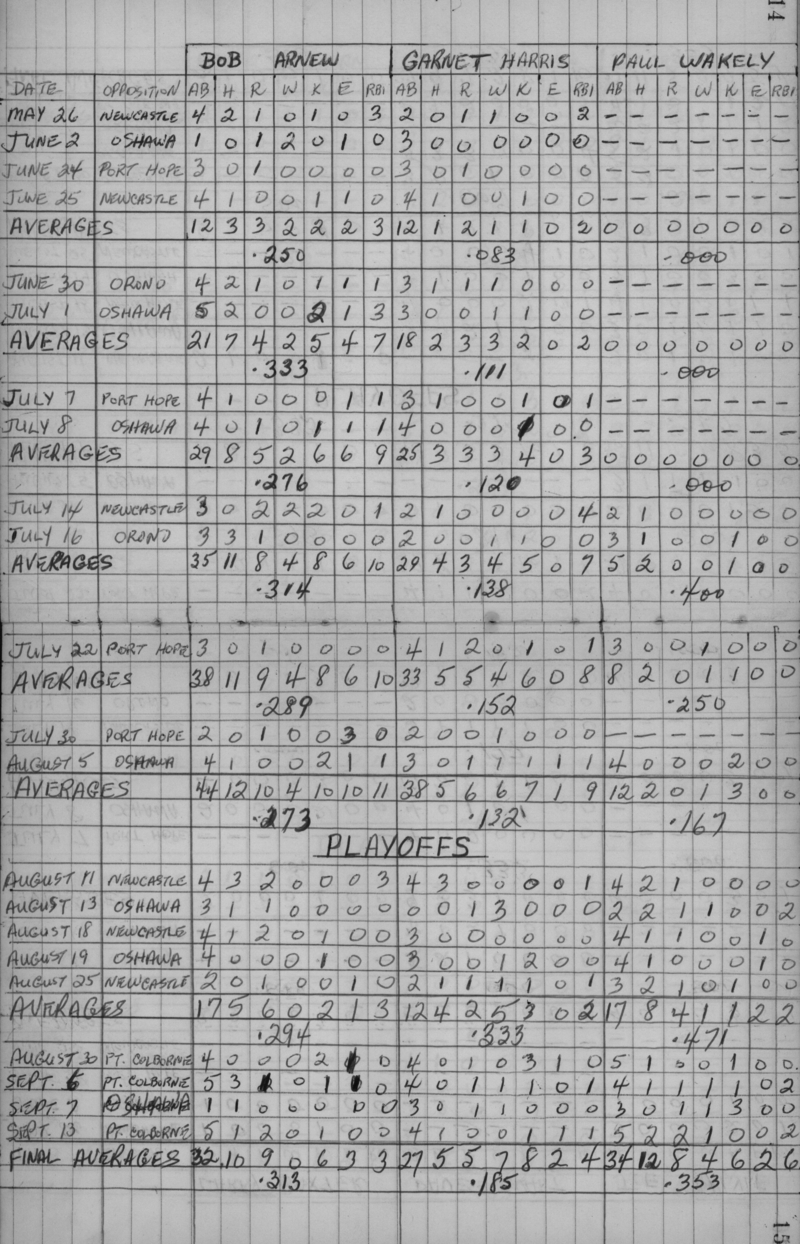 14
BOB ARNEW GARNET HARRIS PAUL WAKELY
DATE OPPOSITION AB H R W K E RBI AB H R W K E RBI AB H R W K E RBI
MAY 26 NEWCASTLE 4 2 1 0 1 0 3 2 0 1 1 0 0 2 - - - - - - -
JUNE 2 OSHAWA 1 0 1 2 0 1 0 3 0 0 0 0 0 0 - - - - - - -
JUNE 24 PORT HOPE 3 0 1 0 0 0 0 3 0 1 0 0 0 0 - - - - - - -
JUNE 25 NEWCASTLE 4 1 0 0 1 1 0 4 1 0 0 1 0 0 - - - - - - -
AVERAGES 12 3 3 2 2 2 3 12 1 2 1 1 0 2 0 0 0 0 0 0 0
.250 .083 .000
JUNE 30 ORONO 4 2 1 0 1 1 1 3 1 1 1 0 0 0 - - - - - - -
JULY 1 OSHAWA 5 2 0 0 2 1 3 3 0 0 1 1 0 0 - - - - - - -
AVERAGES 21 7 4 2 5 4 7 18 2 3 3 2 0 2 0 0 0 0 0 0 0
.333 .111 .000
JULY 7 PORT HOPE 4 1 0 0 0 1 1 3 1 0 0 1 0 1 - - - - - - -
JULY 8 OSHAWA 4 0 1 0 1 1 1 4 0 0 0 1 0 0 - - - - - - -
AVERAGES 29 8 5 2 6 6 9 25 3 3 3 4 0 3 0 0 0 0 0 0 0
.276 .120 .000
JULY 14 NEWCASTLE 3 0 2 2 2 0 1 2 1 0 0 0 0 4 2 1 0 0 0 0 0
JULY 16 ORONO 3 3 1 0 0 0 0 2 0 0 1 1 0 0 3 1 0 0 1 0 0
AVERAGES 35 11 8 4 8 6 10 29 4 3 4 5 0 7 5 2 0 0 1 0 0
.314 .138 .400
JULY 22 PORT HOPE 3 0 1 0 0 0 0 4 1 2 0 1 0 1 3 0 0 1 0 0 0
AVERAGES 38 11 9 4 8 6 10 33 5 5 4 6 0 8 8 2 0 1 1 0 0
.289 .152 .250
JULY 30 PORT HOPE 2 0 1 0 0 3 0 2 0 0 1 0 0 0 - - - - - - -
AUGUST 5 OSHAWA 4 1 0 0 2 1 1 3 0 1 1 1 1 1 4 0 0 0 2 0 0
AVERAGES 44 12 10 4 10 10 11 38 5 6 6 7 1 9 12 2 0 1 3 0 0
.273 .132 .167
PLAYOFFS
AUGUST 11 NEWCASTLE 4 3 2 0 0 0 3 4 3 0 0 0 0 1 4 2 1 0 0 0 0
AUGUST 13 OSHAWA 3 1 1 0 0 0 0 0 0 1 3 0 0 0 2 2 1 1 0 0 2
AUGUST 18 NEWCASTLE 4 1 2 0 1 0 0 3 0 0 0 0 0 0 4 1 1 0 0 1 0
AUGUST 19 OSHAWA 4 0 0 0 1 0 0 3 0 0 1 2 0 0 4 1 0 0 0 1 0
AUGUST 25 NEWCASTLE 2 0 1 0 0 1 0 2 1 1 1 1 0 1 3 2 1 0 1 0 0
AVERAGES 17 5 6 0 2 1 3 12 4 2 5 3 0 2 17 8 4 1 1 2 2
.294 .333 .471
AUGUST 30 PT. COLBORNE 4 0 0 0 2 1 0 4 0 1 0 3 1 0 5 1 0 0 1 0 0
SEPT. 6 PT. COLBORNE 5 3 1 0 1 1 0 4 0 1 1 1 0 1 4 1 1 1 1 0 2
SEPT. 7 OSHAWA 1 1 0 0 0 0 0 3 0 1 1 0 0 0 3 0 1 1 3 0 0
SEPT. 13 PT. COLBORNE 5 1 2 0 1 0 0 4 1 0 0 1 1 1 5 2 2 1 0 0 2
FINAL AVERAGES 32 10 9 0 6 3 3 27 5 5 7 8 2 4 34 12 8 4 6 2 6
.313 .185 .353
15